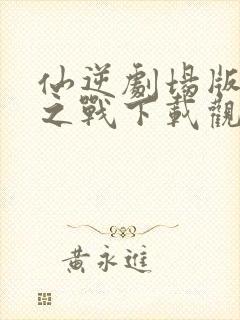 仙逆劇場版
之戰下載觀
黃永進